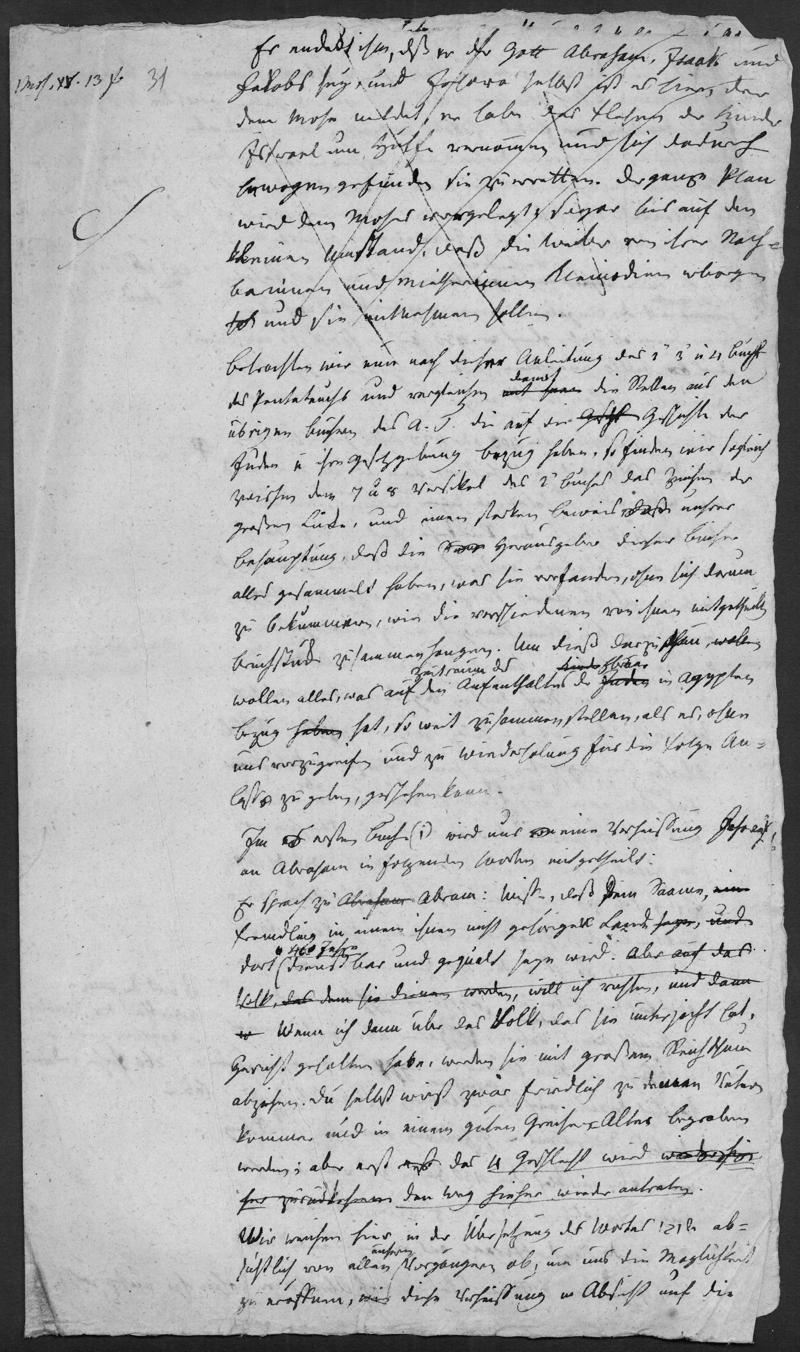 1 Mos. XV. 13 f 31
Er endet ihm, daß er der Gott Abraham, Isaak und
Jakobs sey, und Jehova selbst ist es hier, der
dem Mose meldet, er habe das Flehen der Kinder
Israel um Hülfe vernommen und sich dadurch
bewogen gefunden sie zu erretten. Der ganze Plan
wird dem Moses vorgelegt, sogar bis auf den
kleinen Umstand, daß die Weiber von ihren Nach=
barinnen und Mietherinnen Kleinodien erborgen
und sie mitnehmen sollen.
Betrachten wir nun nach dieser Anleitung das 2 3 u 4 Buch
des Pentateuchs und vergleichen damit die Stellen aus den
übrigen Büchern des A. T. die auf die Geschichte der
Juden u ihre Gesetzgebung bezug haben, so finden wir sogleich
zwischen dem 7 u 8 Versikel des 2 Buches das Zeichen der
großen Lücke, und einen starken beweis unsrer
behauptung, daß die Herausgeber dieser bücher
alles gesammelt haben, was sie vorfanden, ohne sich darum
zu bekümmern, wie die verschiedenen von ihnen mitgetheilten
bruchstücke zusammenhangen. Um dieß darzuthun,
wollen alles, was auf den Zeitraum des Aufenthaltes der in Agypten
bezug hat, so weit zusammenstellen, als es, ohne
uns vorzugreifen und zu wiederholung für die Folge An=
laß zu geben, geschehen kann.
Im ersten Buche (1) wird uns eine Verheissung Jehovas
an Abraham in folgenden Worten mitgetheilt:
Er sprach zu Abram: Wisse, daß Dein Saame,
fremdling in einem ihnen nicht gehörigen Land
dort 400 Jahre dienstbar und gequält seyn wird. Aber auf das
Volk, das dem sie dienen werden, will ich richten, und dann
Wenn ich dann über das Volk, das sie unterjocht hat,
Gericht gehalten habe, werden sie mit großem Reichthum
abziehen. Du selbst wirst zwar friedlich zu deinen Vätern
kommen und in einem guten Greisen Alter begraben
werden; aber erst das 4 Geschlecht wird
den Weg hieher wieder antreten.
Wir weichen hier in der Übersetzung des Wortes ab=
sichtlich von allen unsern Vorgängern ab, um uns die Möglichkeit
zu eröffnen, diese Verheissung in Absicht auf die